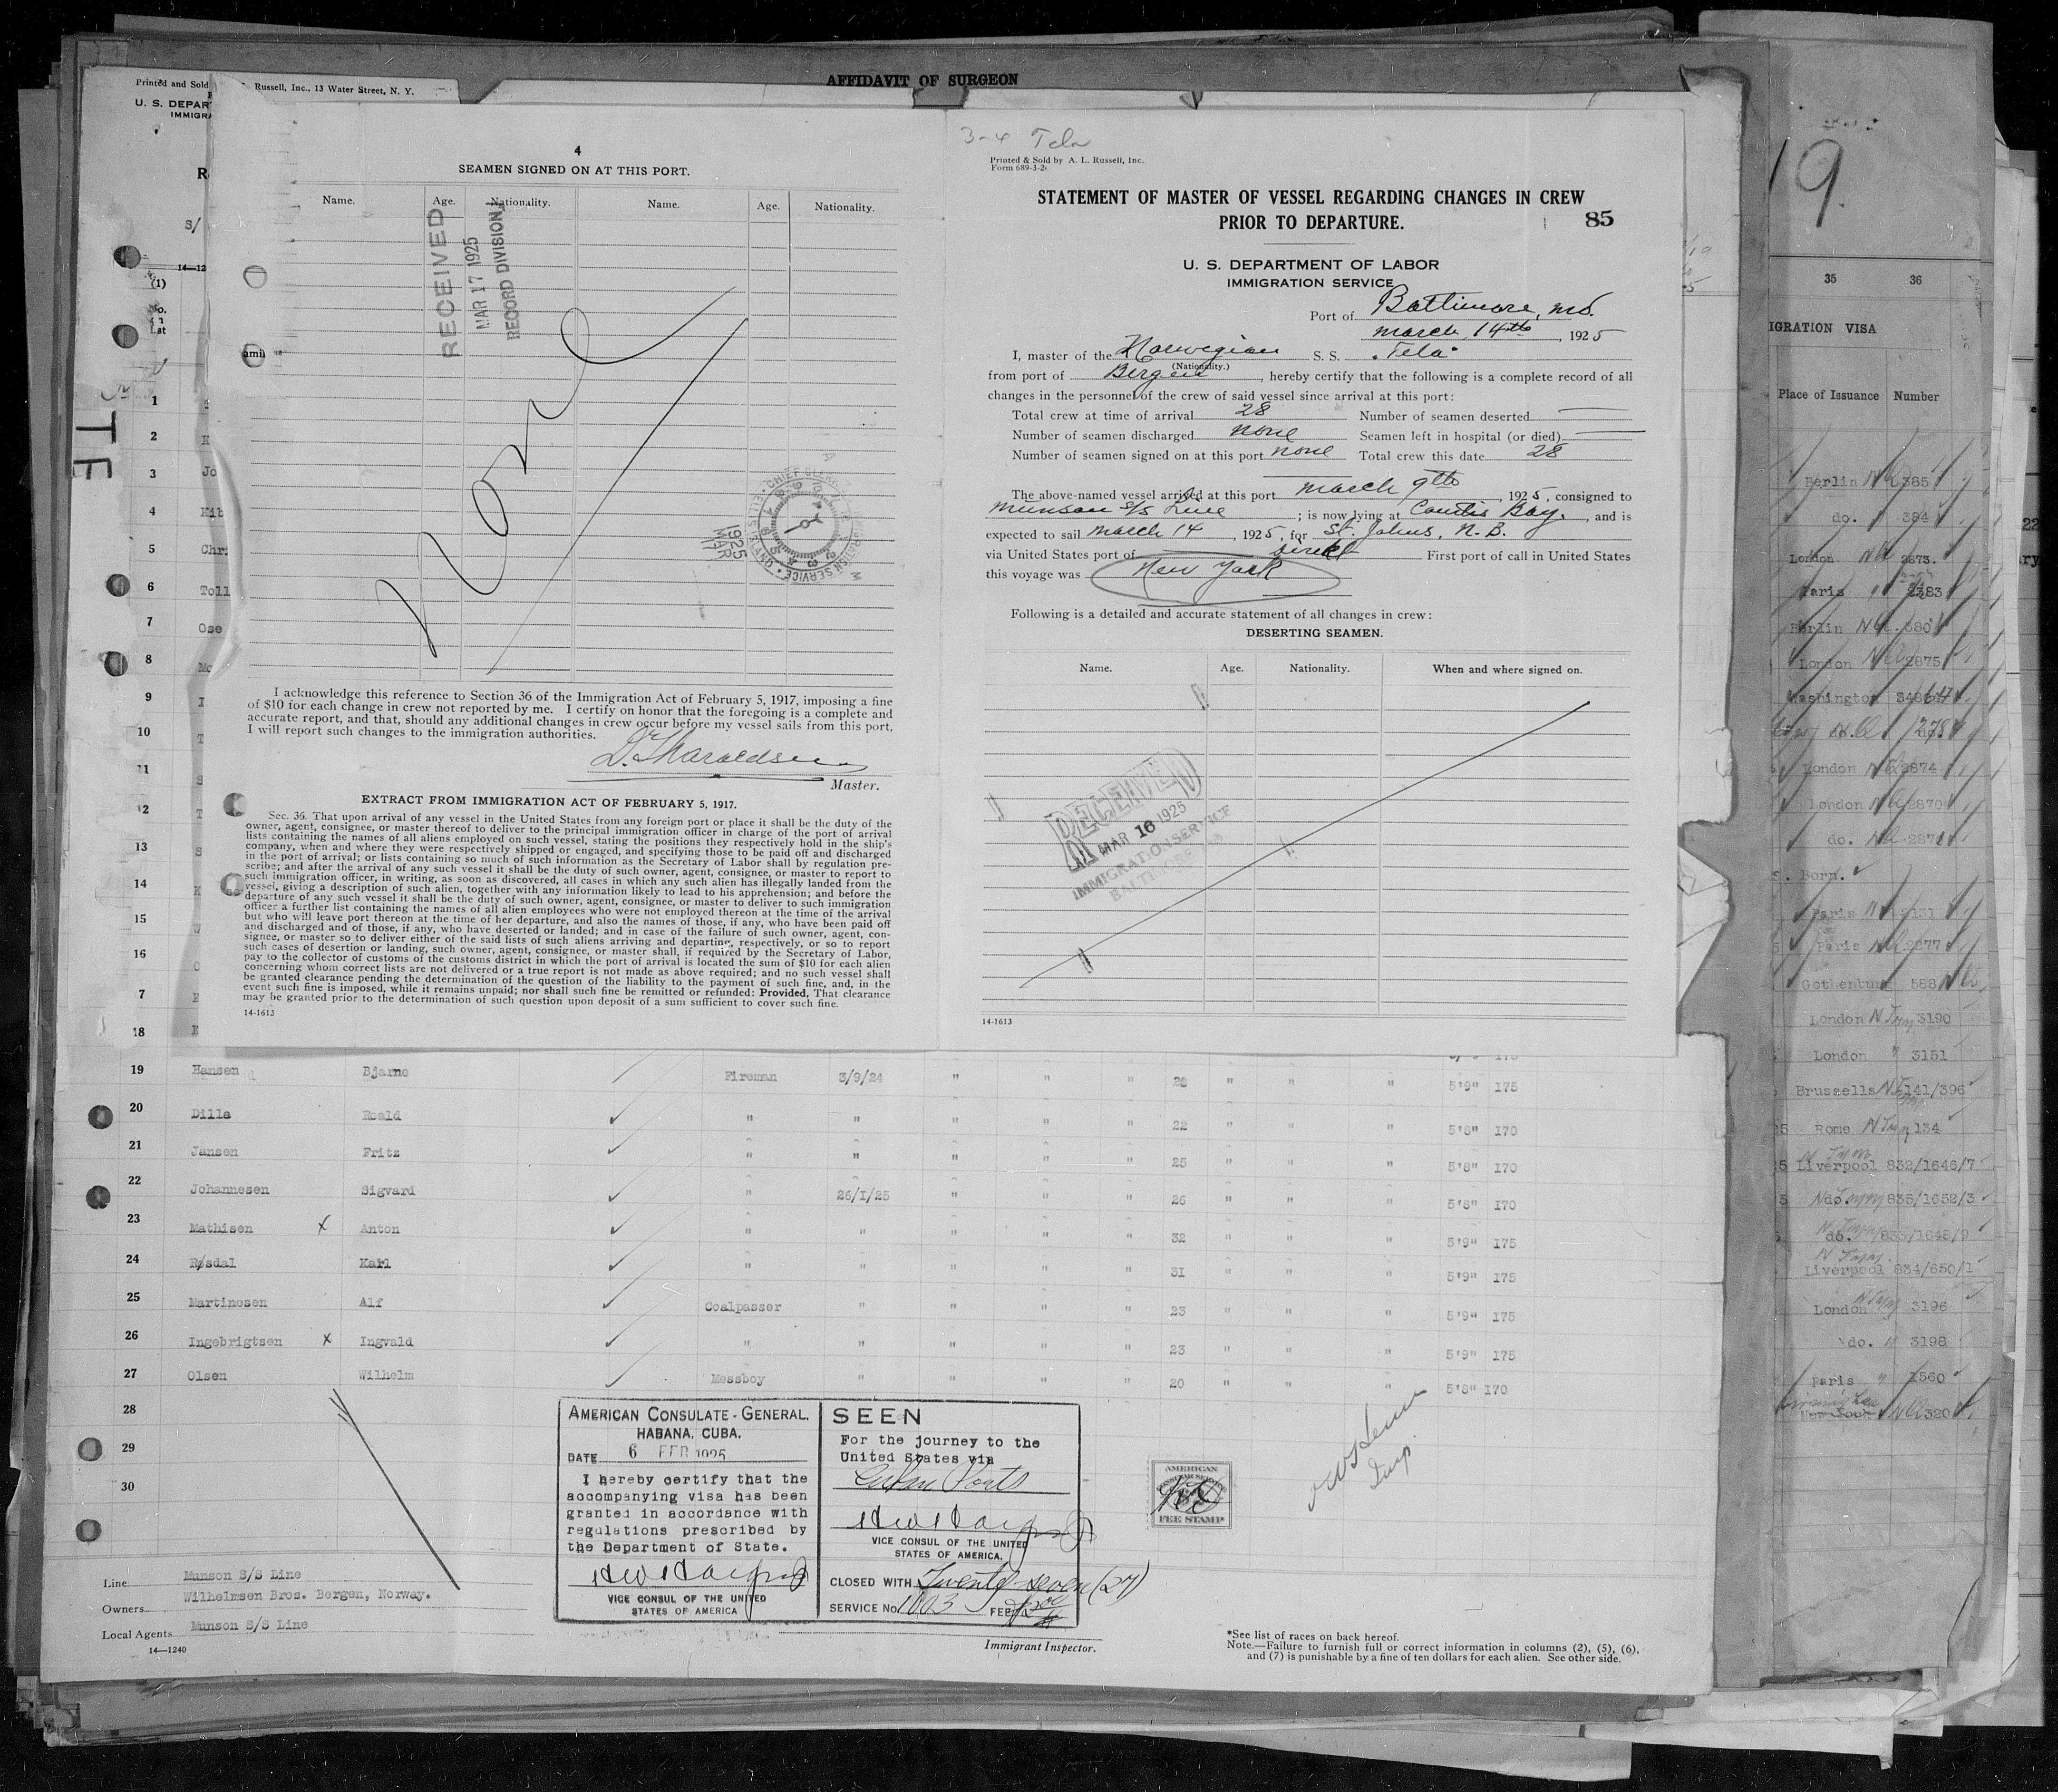 AFFIDAVIT OF SURGEON
Printed and Sold
Russell, Inc., 13 Water Street, N. Y.
U. S. DEPAR
IMMIGRA
4
SEAMEN SIGNED ON AT THIS PORT.
Name. Age. Nationality. Name. Age. Nationality.
RECEIVED
MAR 17 1925
RECORD DIVISION
None
1925
MAR
17
I acknowledge this reference to Section 36 of the Immigration Act of February 5, 1917, imposing a fine
of $10 for each change in crew not reported by me. I certify on honor that the foregoing is a complete and
accurate report, and that, should any additional changes in crew occur before my vessel sails from this port,
I will report such changes to the immigration authorities.
Master.
EXTRACT FROM IMMIGRATION ACT OF FEBRUARY 5, 1917.
Sec. 36. That upon arrival of any vessel in the United States from any foreign port or place it shall be the duty of the
owner, agent, consignee, or master thereof to deliver to the principal immigration officer in charge of the port of arrival
lists containing the names of all aliens employed on such vessel, stating the positions they respectively hold in the ship's
company, when and where they were respectively shipped or engaged, and specifying those to be paid off and discharged
in the port of arrival; or lists containing so much of such information as the Secretary of Labor shall by regulation pre-
scribe; and after the arrival of any such vessel it shall be the duty of such owner, agent, consignee, or master to report to
such immigration officer, in writing, as soon as discovered, all cases in which any such alien has illegally landed from the
vessel, giving a description of such alien, together with any information likely to lead to his apprehension; and before the
departure of any such vessel it shall be the duty of such owner, agent, consignee, or master to deliver to such immigration
officer a further list containing the names of all alien employees who were not employed thereon at the time of the arrival
but who will leave port thereon at the time of her departure, and also the names of those, if any, who have been paid off
and discharged and of those, if any, who have deserted or landed; and in case of the failure of such owner, agent, con-
signee, or master so to deliver either of the said lists of such aliens arriving and departing, respectively, or so to report
such cases of desertion or landing, such owner, agent, consignee, or master shall, if required by the Secretary of Labor,
pay to the collector of customs of the customs district in which the port of arrival is located the sum of $10 for each alien
concerning whom correct lists are not delivered or a true report is not made as above required; and no such vessel shall
be granted clearance pending the determination of the question of the liability to the payment of such fine, and, in the
event such fine is imposed, while it remains unpaid; nor shall such fine be remitted or refunded: Provided, That clearance
may be granted prior to the determination of such question upon deposit of a sum sufficient to cover such fine.
14-1613
3-4 Tela
Printed & Sold by A. L. Russell, Inc.
Form 689-3-2
STATEMENT OF MASTER OF VESSEL REGARDING CHANGES IN CREW
PRIOR TO DEPARTURE.
85
U. S. DEPARTMENT OF LABOR
IMMIGRATION SERVICE
Port of Baltimore, Md.
March 14th, 1925
I, master of the Norwegian S. S. "Tela"
(Nationality.)
from port of Bergen, hereby certify that the following is a complete record of all
changes in the personnel of the crew of said vessel since arrival at this port:
Total crew at time of arrival 28 Number of seamen deserted —
Number of seamen discharged none Seamen left in hospital (or died) —
Number of seamen signed on at this port none Total crew this date 28
The above-named vessel arrived at this port March 9th, 1925, consigned to
Munson S/S Line; is now lying at Curtis Bay, and is
expected to sail March 14, 1925, for St. Johns, N. B.
via United States port of direct First port of call in United States
this voyage was New York
Following is a detailed and accurate statement of all changes in crew:
DESERTING SEAMEN.
Name. Age. Nationality. When and where signed on.
RECEIVED
MAR 16 1925
IMMIGRATION SERVICE
14-1613
19 Hansen Bjarne Fireman 3/9/24 " " " 20 " " " 5'9" 175
20 Dille Roald " " " " " 22 " " " 5'8" 170
21 Jansen Fritz " " " " " 25 " " " 5'8" 170
22 Johannesen Sigvard " 26/1/25 " " " 26 " " " 5'8" 170
23 Mathisen x Anton " " " " " 32 " " " 5'9" 175
24 Røsdal Karl " " " " " 31 " " " 5'9" 175
25 Martinesen Alf Coalpasser " " " " 23 " " " 5'9" 175
26 Ingebrigtsen x Ingvald " " " " " 23 " " " 5'9" 175
27 Olsen Wilhelm Messboy " " " " 20 " " " 5'8" 170
28
29
30
AMERICAN CONSULATE-GENERAL.
HABANA, CUBA.
DATE 6 FEB 1925
I hereby certify that the
accompanying visa has been
granted in accordance with
regulations prescribed by
the Department of State.
VICE CONSUL OF THE UNITED
STATES OF AMERICA
SEEN
For the journey to the
United States via
Cuban Ports
VICE CONSUL OF THE UNITED
STATES OF AMERICA.
CLOSED WITH Twenty-seven (27)
SERVICE No. 1003 FEE
AMERICAN
FEE STAMP
Line Munson S/S Line
Owners Wilhelmsen Bros. Bergen, Norway.
Local Agents Munson S/S Line
14—1240
Immigrant Inspector.
*See list of races on back hereof.
Note.—Failure to furnish full or correct information in columns (2), (5), (6),
and (7) is punishable by a fine of ten dollars for each alien. See other side.
19.
35 36
IGRATION VISA
Place of Issuance Number
Berlin 385
do. 384
London 2873
Paris 2383
Berlin 380
London 2875
Washington
London 2874
London 2870
do. 2871
Born.
Paris
Paris 2877
Gothenburg 588
London 3190
London " 3151
Brussells 141/396
Rome 134
Liverpool 832/1646/7
do. 835/1652/3
do. 833/1648/9
Liverpool 834/650/1
London 3196
do. 3198
Paris " 1560
320